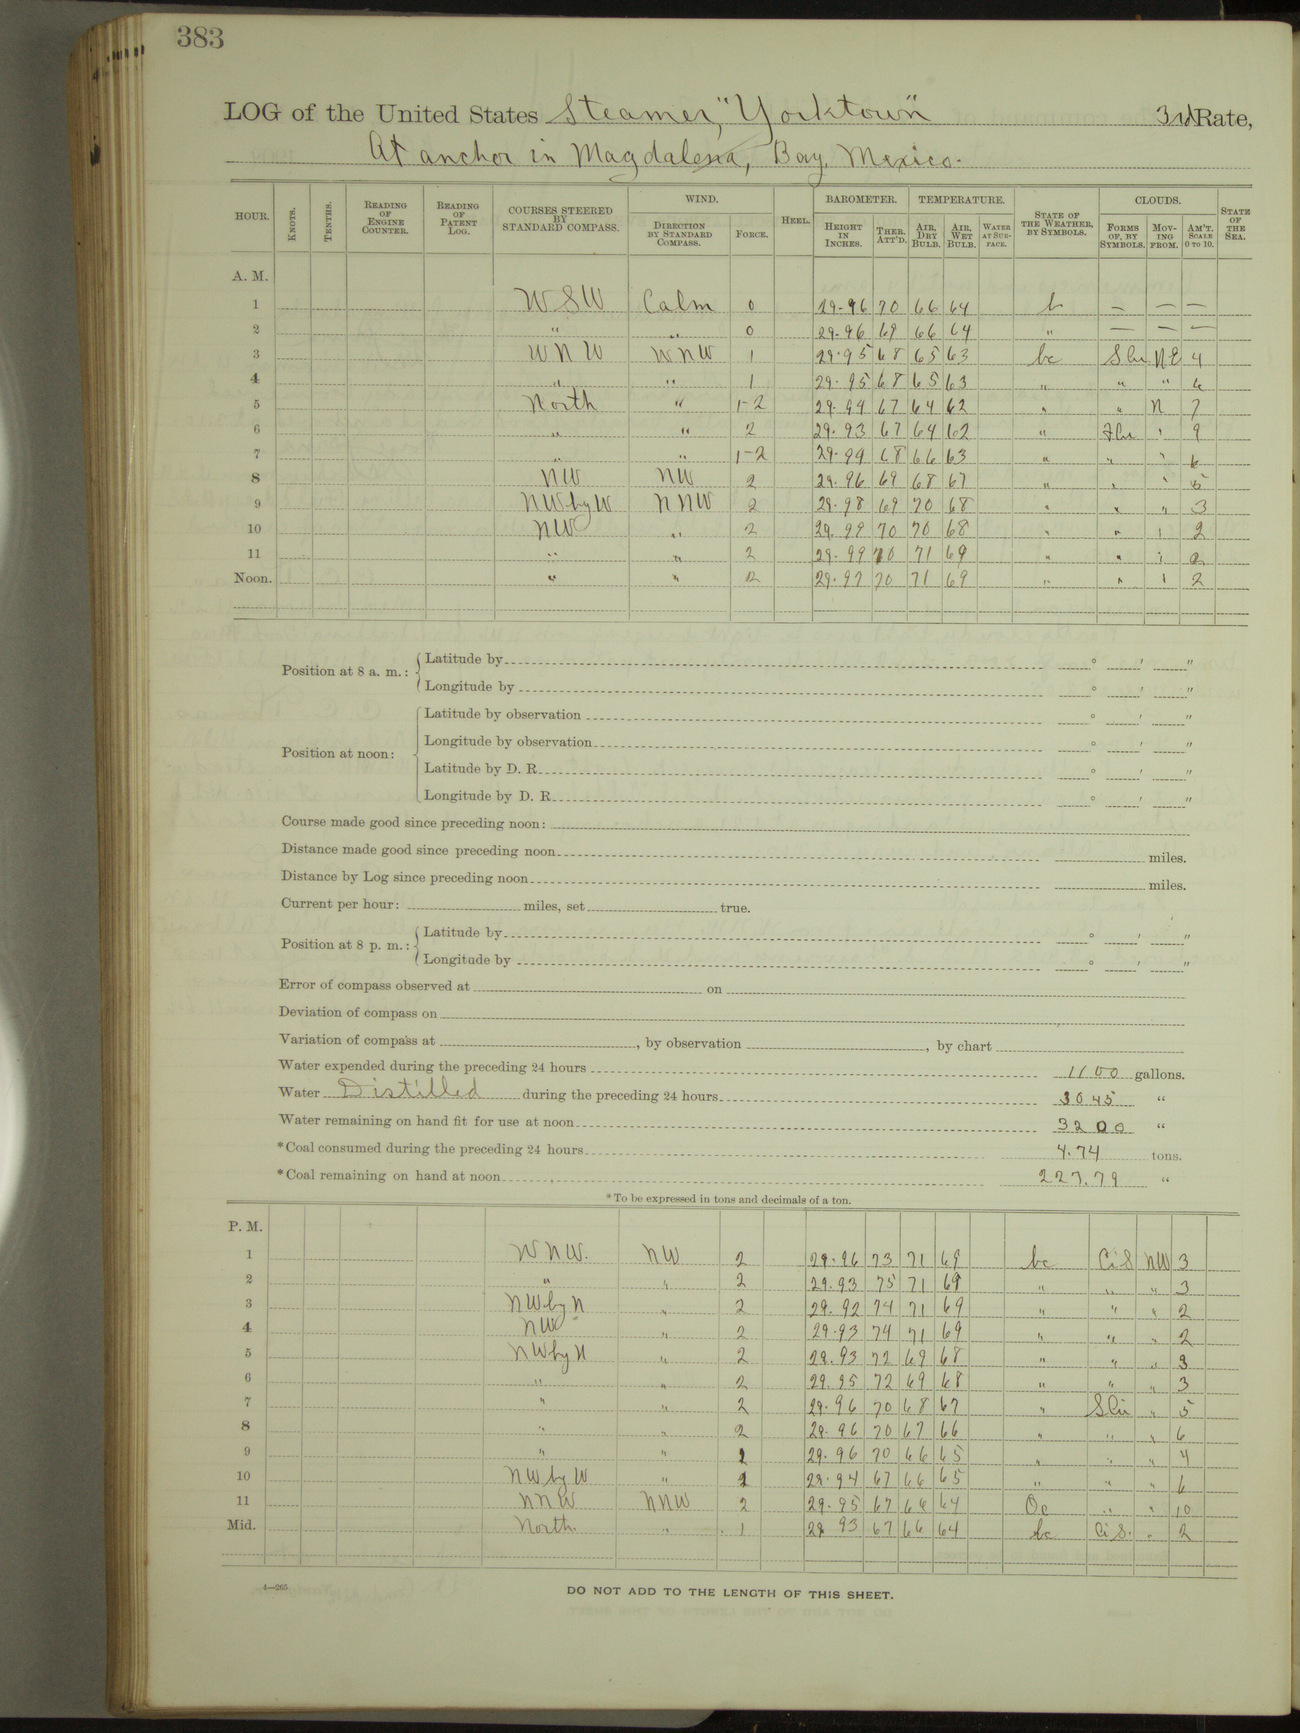 383
LOG of the United States Steamer, "Yorktown" 3rd Rate,
At anchor in Magdalena, Bay, Mexico.
HOUR. KNOTS. TENTHS. READING OF ENGINE COUNTER. READING OF PATENT LOG. COURSES STEERED BY STANDARD COMPASS. WIND. DIRECTION BY STANDARD COMPASS. FORCE. HEEL. BAROMETER. HEIGHT IN INCHES. THER. ATT'D. TEMPERATURE. AIR, DRY BULB. AIR, WET BULB. WATER AT SURFACE. STATE OF THE WEATHER, BY SYMBOLS. CLOUDS. FORMS OF, BY SYMBOLS. MOVING FROM. AM'T. SCALE 0 TO 10. STATE OF THE SEA.
A. M.
1 WSW Calm 0 29.96 70 66 64 b — — —
2 " " 0 29.96 69 66 64 " — — —
3 WNW WNW 1 29.95 68 65 63 bc NE 4
4 " " 1 29.95 68 65 63 " " "
5 North " 1-2 29.94 67 64 62 " " N 7
6 " " 2 29.93 67 64 62 " " 9
7 " " 1-2 29.94 68 66 63 " " " 6
8 NW NW 2 29.96 69 68 67 " " " 5
9 NW by W NNW 2 29.98 69 70 68 " " " 3
10 NW " 2 29.99 70 70 68 " " " 2
11 " " 2 29.99 70 71 69 " " " 2
Noon. " " 2 29.97 70 71 69 " " " 2
Position at 8 a. m.: Latitude by ° ' "
Longitude by ° ' "
Position at noon: Latitude by observation ° ' "
Longitude by observation ° ' "
Latitude by D. R. ° ' "
Longitude by D. R. ° ' "
Course made good since preceding noon:
Distance made good since preceding noon miles.
Distance by Log since preceding noon miles.
Current per hour: miles, set true.
Position at 8 p. m.: Latitude by ° ' "
Longitude by ° ' "
Error of compass observed at on
Deviation of compass on
Variation of compass at , by observation , by chart
Water expended during the preceding 24 hours 1100 gallons.
Water Distilled during the preceding 24 hours 3045 "
Water remaining on hand fit for use at noon 3200 "
*Coal consumed during the preceding 24 hours 4.74 tons.
*Coal remaining on hand at noon 227.79 "
*To be expressed in tons and decimals of a ton.
P. M.
1 WNW. NW 2 29.96 73 71 69 bc Ci S NW 3
2 " " 2 29.93 75 71 69 " " " 3
3 NW by N " 2 29.92 74 71 69 " " " 2
4 NW " 2 29.93 74 71 69 " " " 2
5 NW by N " 2 29.93 72 69 68 " " " 3
6 " " 2 29.95 72 69 68 " " " 3
7 " " 2 29.96 70 68 67 " " 5
8 " " 2 29.96 70 67 66 " " " 6
9 " " 2 29.96 70 66 65 " " " 4
10 NW by W " 2 29.94 67 66 65 " " " 6
11 NNW NNW 2 29.95 67 66 64 Oc " " 10
Mid. North. " 1 29 93 67 66 64 bc Ci S. " 2
4—265
DO NOT ADD TO THE LENGTH OF THIS SHEET.